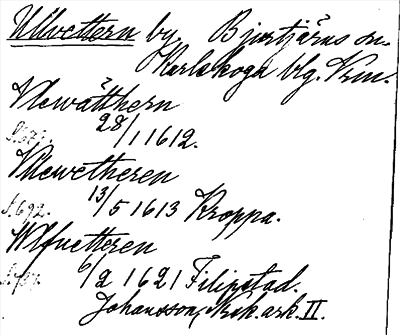 Ullvettern by. Bjurtjärns sn.
Karlskoga blg. Krm.
Vlewätthern
28/1 1612.
Vllewetheren
s. 692. 13/5 1613 Kroppa.
Wlfuetteren
6/2 1621 Filipstad.
Johansson, Rik. ark. II.